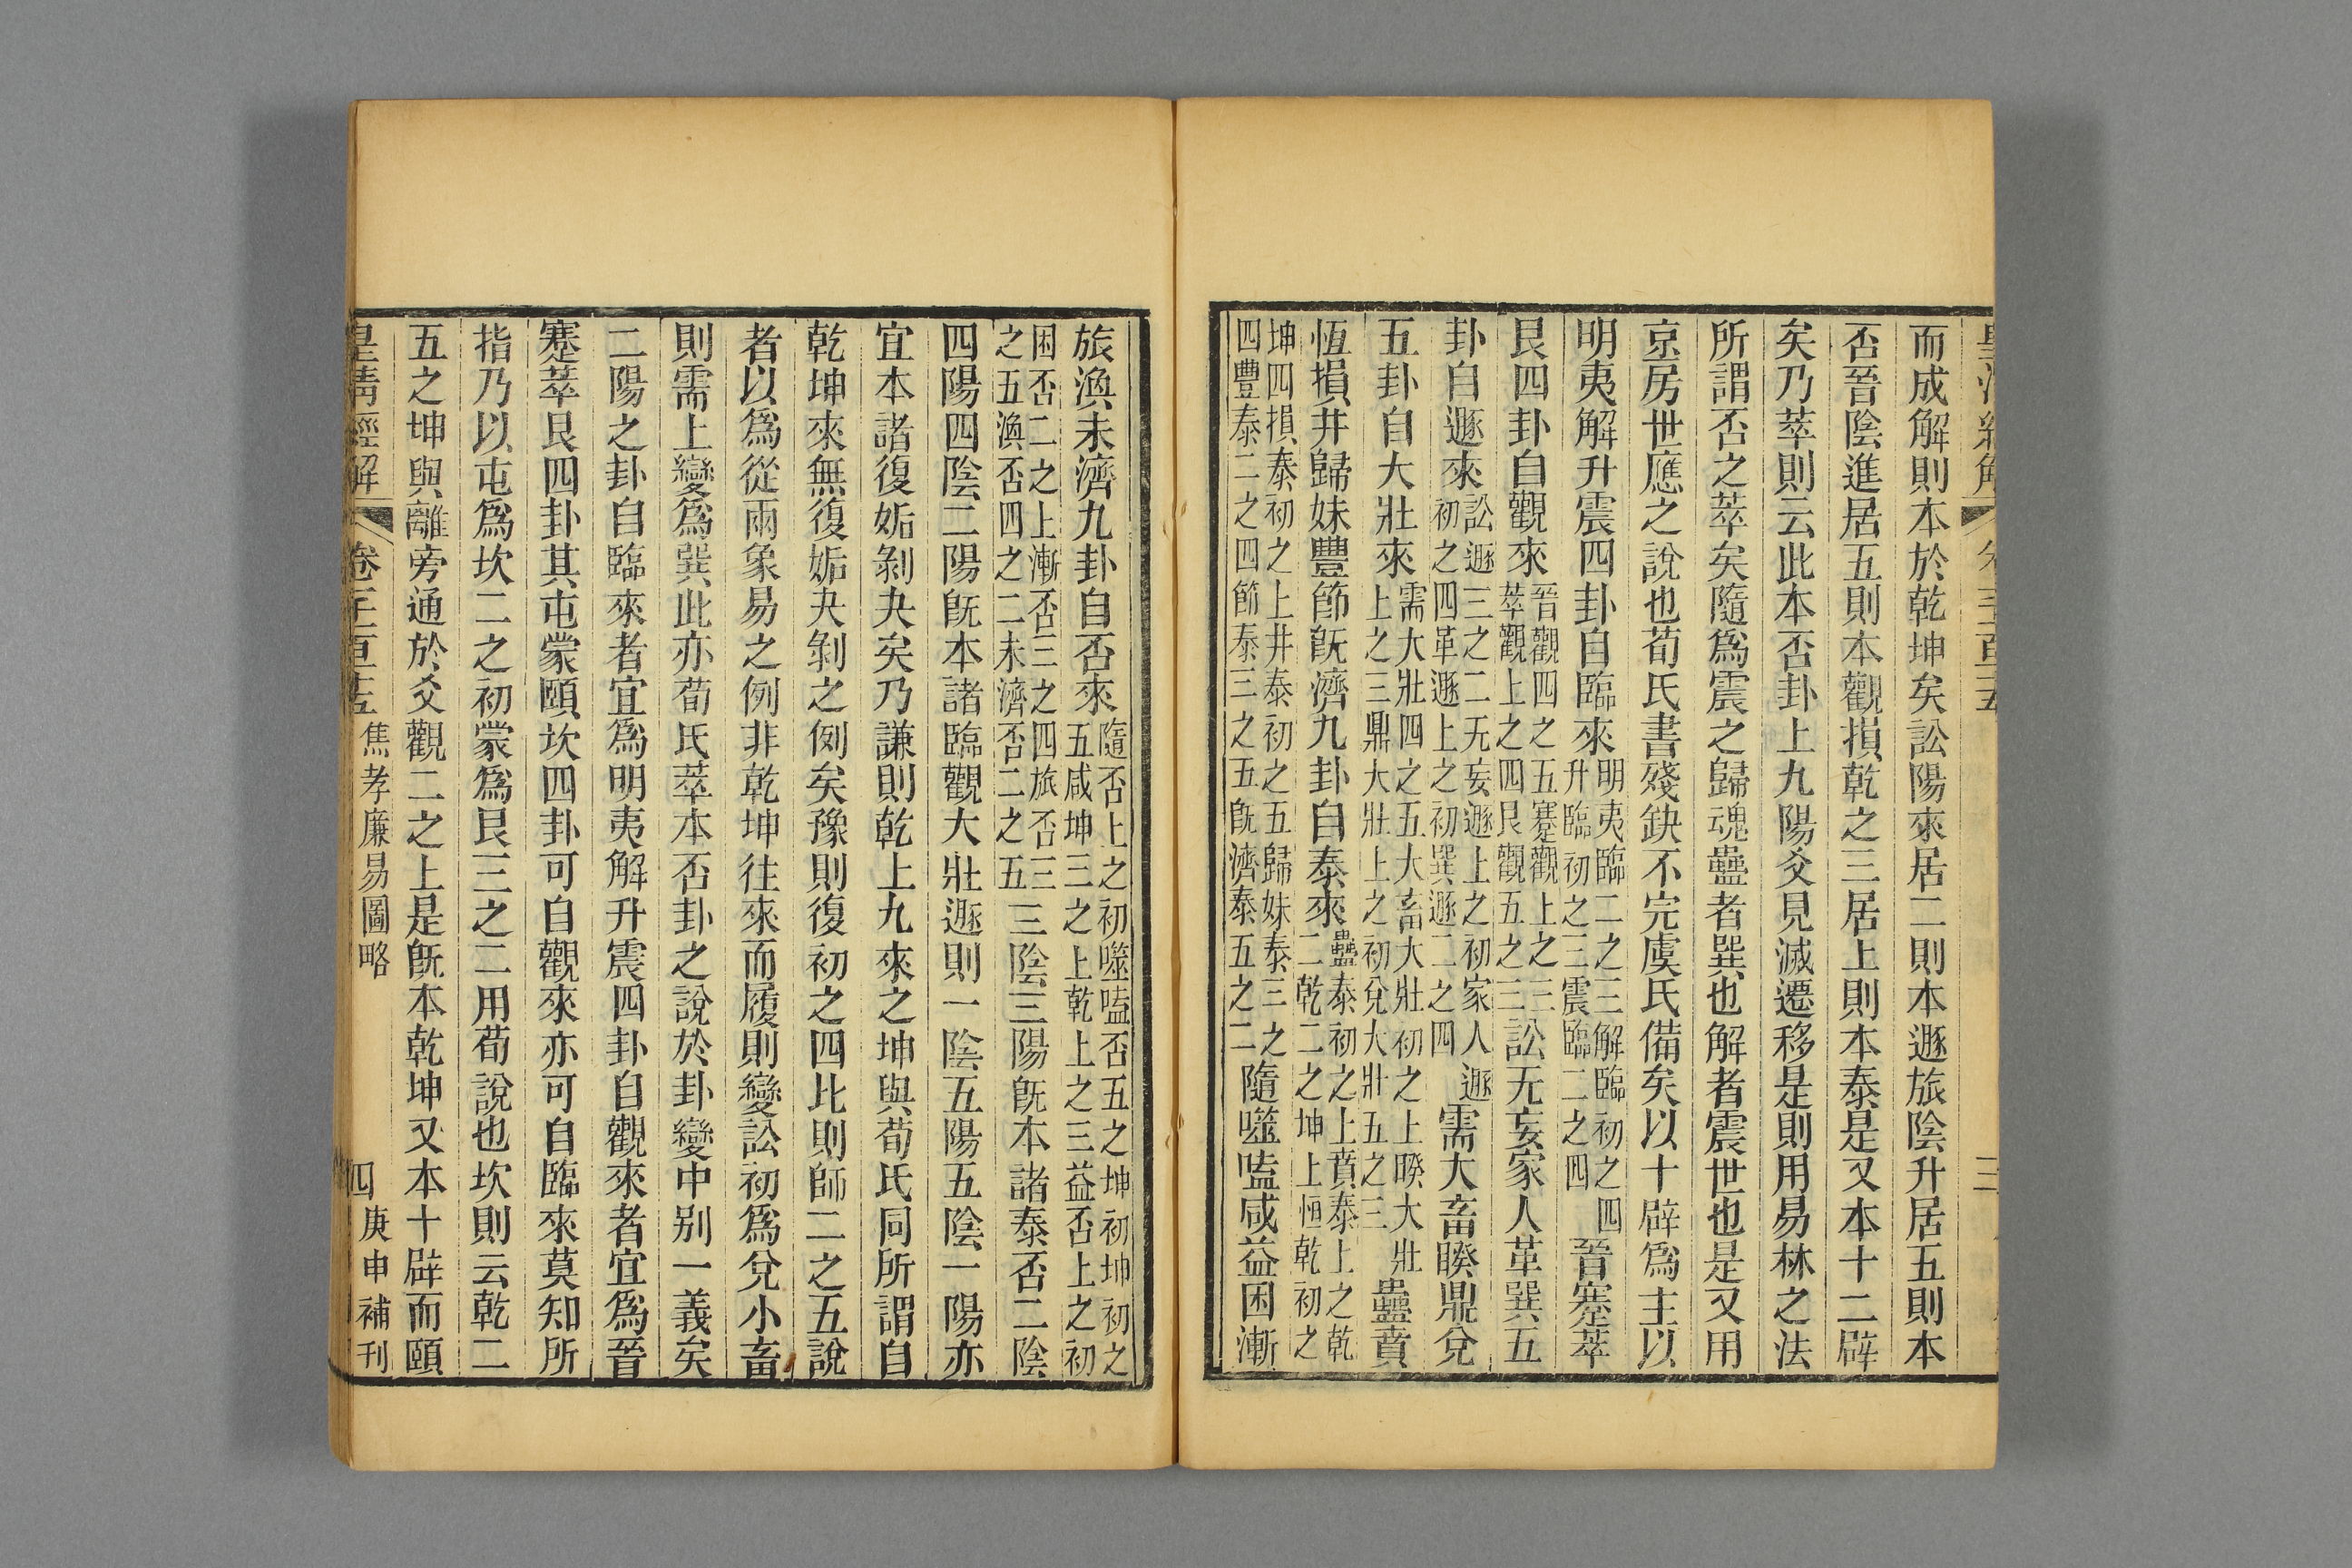 而成解則本於乾坤矣訟陽來居二則本遯旅陰升居五則本
否晉陰進居五則本觀損乾之三居上則本泰是又本十二辟
矣乃萃則云此本否卦上九陽爻見滅遷移是則用易林之法
所謂否之萃矣隨爲震之歸魂蠱者巽也解者震世也是又用
京房世應之說也荀氏書殘缺不完虞氏備矣以十辟爲主以
明夷解升震四卦自臨來明夷臨二之三解臨初之四升臨初之三震臨二之四晉蹇萃
艮四卦自觀來晉觀四之五蹇觀上之三萃觀上之四艮觀五之三訟无妄家人革巽五
卦自遯來訟遯三之二无妄遯上之初家人遯初之四革遯上之初巽遯二之四需大畜睽鼎兌
五卦自大壯來需大壯四之五大畜大壯初之上睽大壯上之三鼎大壯上之初兌大壯五之三蠱賁
恆損井歸妹豐節旣濟九卦自泰來蠱泰初之上賁泰上之乾二乾二之坤上恒乾初之
坤四損泰初之上井泰初之五歸妹泰三之四豐泰二之四節泰三之五旣濟泰五之二隨噬嗑咸益困漸
旅渙未濟九卦自否來隨否上之初噬嗑否五之坤初坤初之五咸坤三之上乾上之三益否上之初
困否二之上漸否三之四旅否三之五渙否四之二未濟否二之五三陰三陽旣本諸泰否二陰
四陽四陰二陽旣本諸臨觀大壯遯則一陰五陽五陰一陽亦
宜本諸復姤剝夬矣乃謙則乾上九來之坤與荀氏同所謂自
乾坤來無復姤夬剝之例矣豫則復初之四比則師二之五說
者以爲從兩象易之例非乾坤往來而履則變訟初爲兌小畜
則需上變爲巽此亦荀氏萃本否卦之說於卦變中别一義矣
二陽之卦自臨來者宜爲明夷解升震四卦自觀來者宜爲晉
蹇萃艮四卦其屯蒙頤坎四卦可自觀來亦可自臨來莫知所
指乃以屯爲坎二之初蒙爲艮三之二用荀說也坎則云乾二
五之坤與離旁通於爻觀二之上是旣本乾坤又本十辟而頤
皇清經解
焦孝廉易圖略
四
庚申補刊